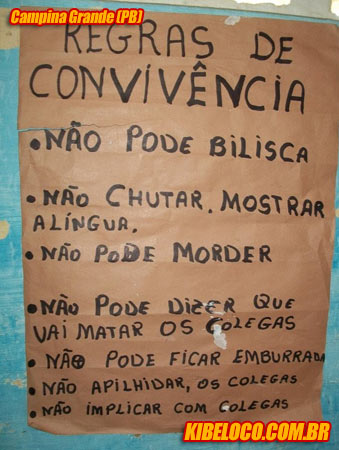 Campina Grande (PB)
REGRAS DE
CONVIVÊNCIA
•NÃO PODE BILISCA
•NÃO CHUTAR. MOSTRAR
A LÍNGUA.
•NÃO PODE MORDER
•NÃO PODE DIZER QUE
VAI MATAR OS COLEGAS
•NÃO PODE FICAR EMBURRADA
•NÃO APILHIDAR, OS COLEGAS
•NÃO IMPLICAR COM COLEGAS
KIBELOCO.COM.BR